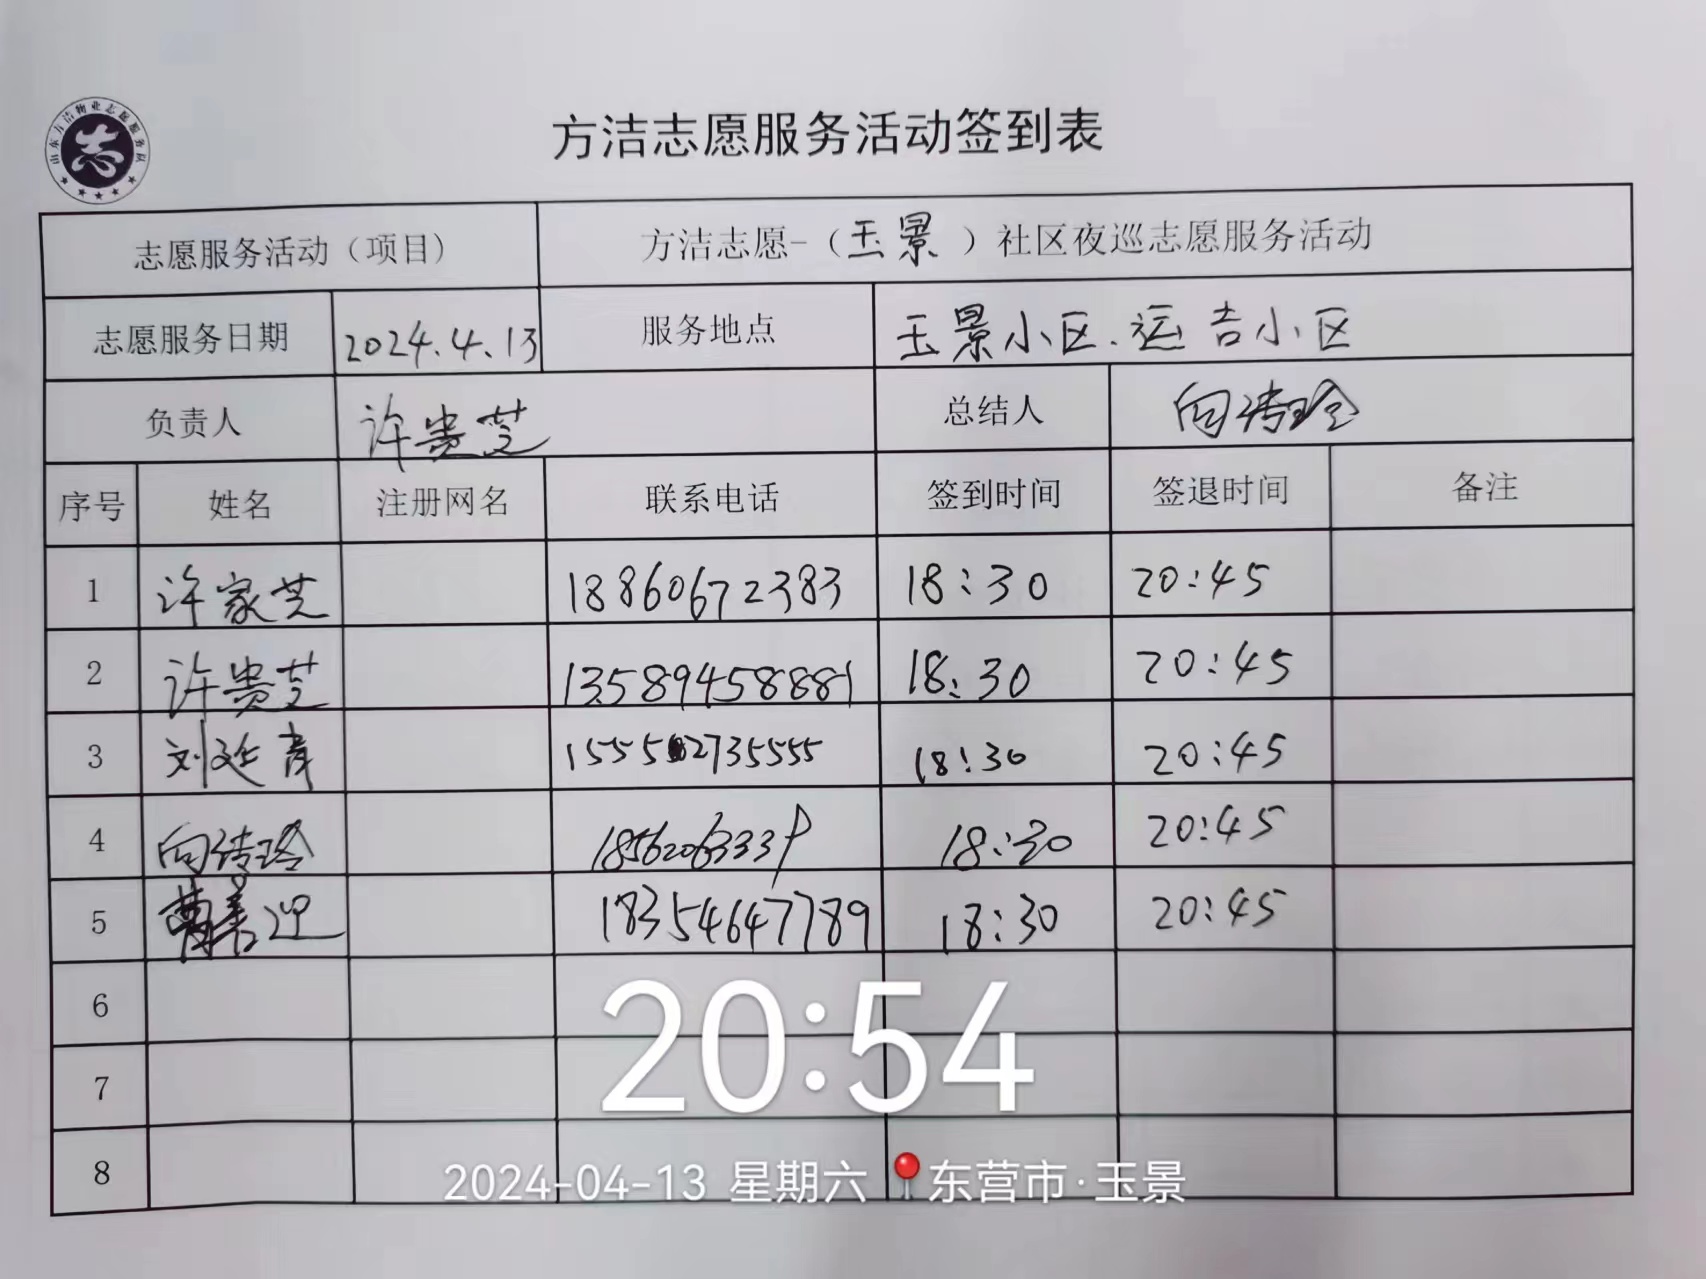 山东方洁物业志愿服务队
志
方洁志愿服务活动签到表
志愿服务活动（项目） 方洁志愿-（玉景）社区夜巡志愿服务活动
志愿服务日期 2024.4.13 服务地点 玉景小区.运吉小区
负责人 许贵芝 总结人 向传玲
序号 姓名 注册网名 联系电话 签到时间 签退时间 备注
1 许家芝 18860672383 18:30 20:45
2 许贵芝 13589458881 18:30 20:45
3 刘延青 18:30 20:45
4 向传玲 18:30 20:45
5 18354647789 18:30 20:45
6
7
8
20:54
2024-04-13 星期六 东营市·玉景